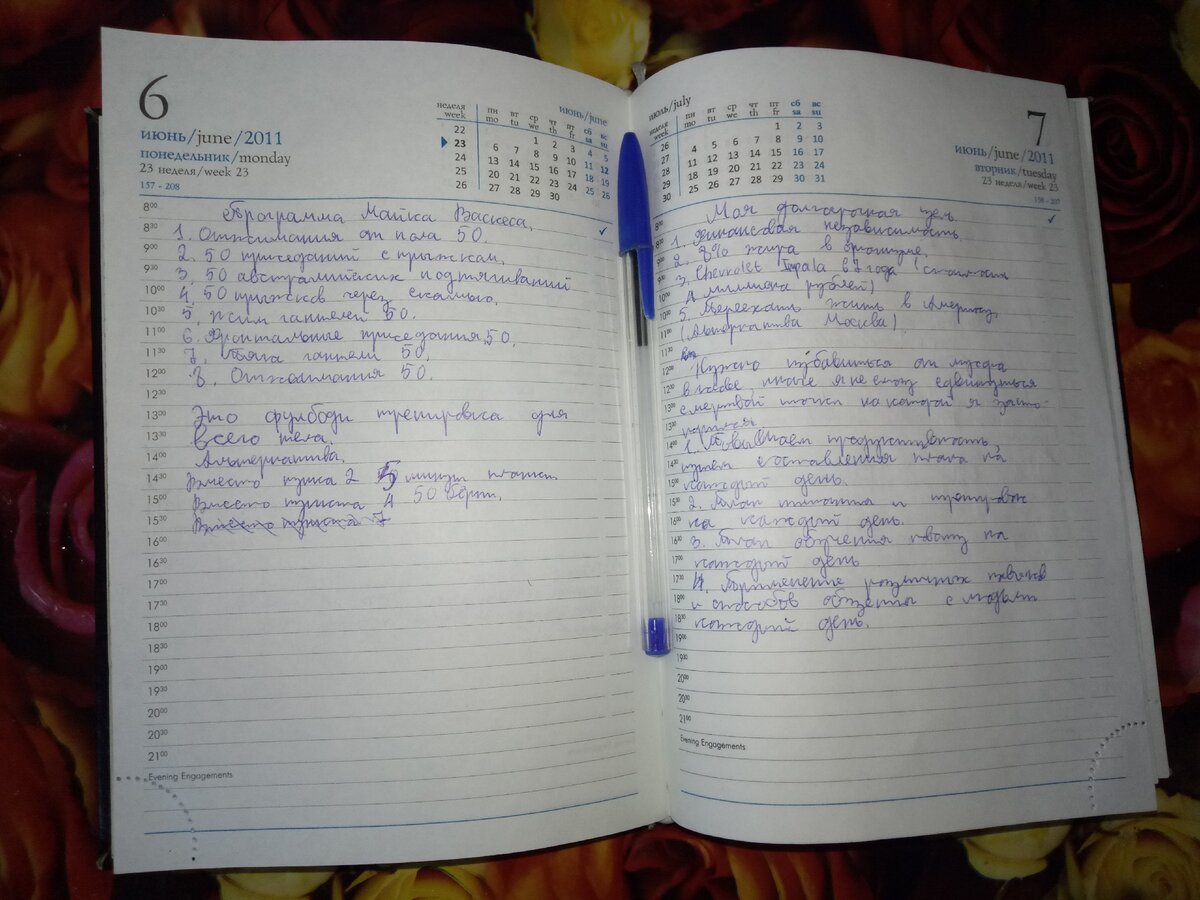 6
июнь/june/2011
понедельник/monday
23 неделя/week 23
157 - 208
неделя week пн mo вт tu ср we чт th пт fr сб sa вс su
июнь/june
22 1 2 3 4 5
23 6 7 8 9 10 11 12
24 13 14 15 16 17 18 19
25 20 21 22 23 24 25 26
26 27 28 29 30
8⁰⁰ Программа Майка Васкеса.
8³⁰ 1. Отжимания от пола 50.
9⁰⁰ 2. 50 приседаний с прыжком.
9³⁰ 3. 50 австралийских подтягиваний
10⁰⁰ 4. 50 прыжков через скамью.
10³⁰ 5. Жим гантелей 50.
11⁰⁰ 6. Фронтальные приседания 50.
11³⁰ 7. Тяга гантели 50.
12⁰⁰ 8. Отжимания 50.
12³⁰
13⁰⁰ Это фулбоди тренировка для
13³⁰ всего тела.
14⁰⁰ Альтернатива.
14³⁰ Вместо пункта 2 5 минут планки.
15⁰⁰ Вместо пункта 4 50 бёрпи.
15³⁰ Вместо пункта 7
16⁰⁰
16³⁰
17⁰⁰
17³⁰
18⁰⁰
18³⁰
19⁰⁰
19³⁰
20⁰⁰
20³⁰
21⁰⁰
Evening Engagements
июль/july
неделя week пн mo вт tu ср we чт th пт fr сб sa вс su
26 1 2 3
27 4 5 6 7 8 9 10
28 11 12 13 14 15 16 17
29 18 19 20 21 22 23 24
30 25 26 27 28 29 30 31
7
июнь/june/2011
вторник/tuesday
23 неделя/week 23
158 - 207
8⁰⁰ Моя долгосрочная цель
8³⁰ 1. Финансовая независимость
9⁰⁰ 2. 8% жира в организме.
9³⁰ 3. Chevrolet Impala года (стоимость
10⁰⁰ миллиона рублей)
10³⁰ 5. Переехать жить в Америку.
11⁰⁰ (Альтернатива Москва).
11³⁰
12⁰⁰ Нужно избавиться от мусора
12³⁰ в голове, иначе я не смогу сдвинуться
13⁰⁰ с мертвой точки на которой я
13³⁰
14⁰⁰ 1. Повышаем продуктивность,
14³⁰ путем составления плана на
15⁰⁰ каждый день.
15³⁰ 2. План питания и тренировок
16⁰⁰ на каждый день.
16³⁰ 3. План обучения на
17⁰⁰ каждый день
17³⁰ 4. Применение различных навыков
18⁰⁰ и способов общения с людьми
18³⁰ каждый день.
19⁰⁰
19³⁰
20⁰⁰
20³⁰
21⁰⁰
Evening Engagements